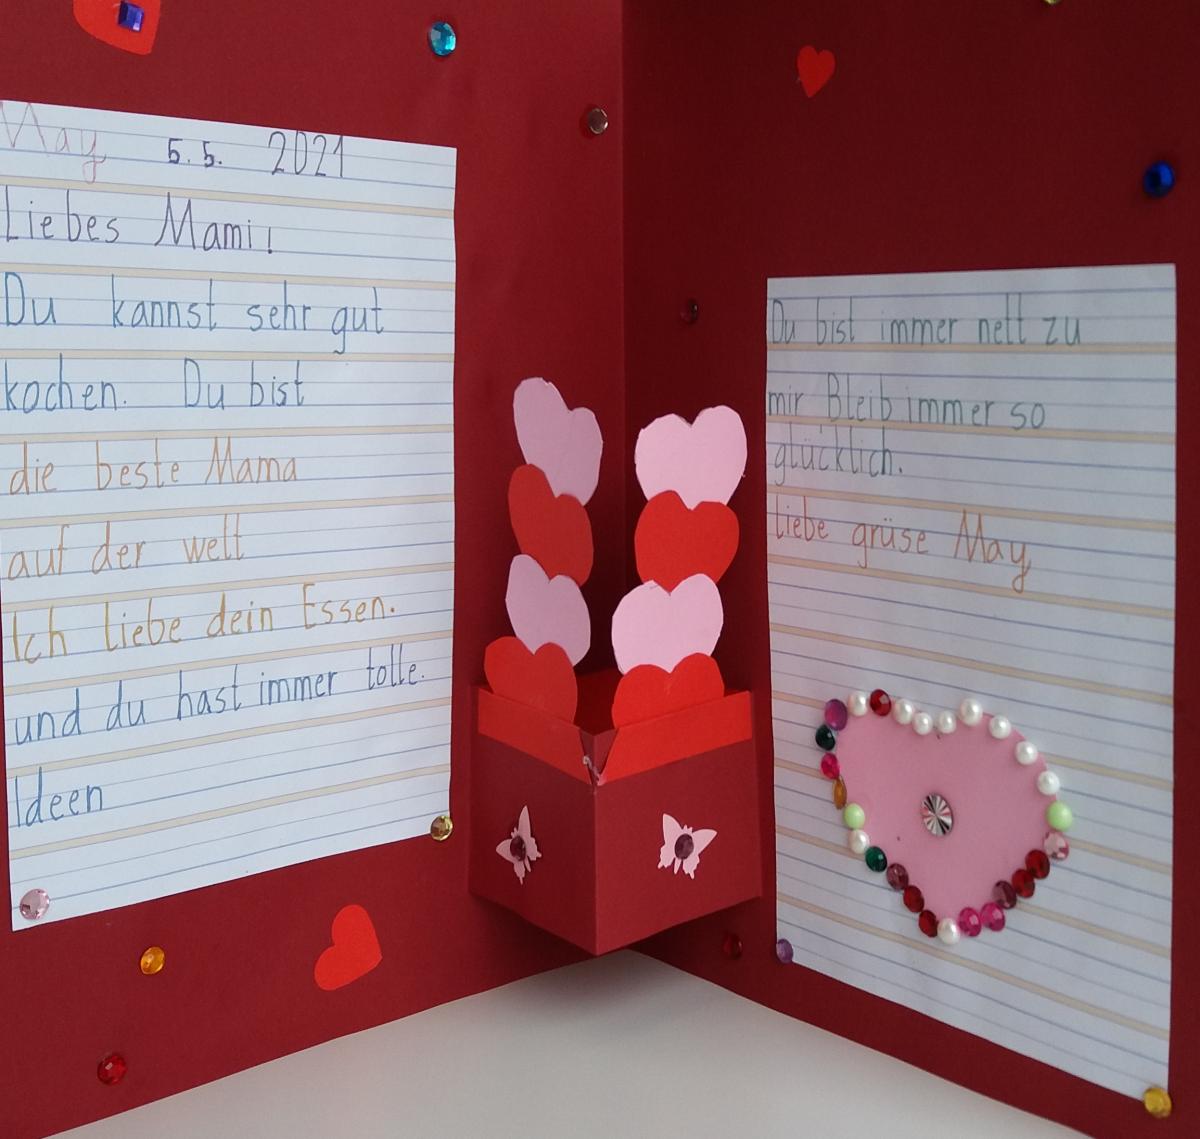 May 5.5. 2021
Liebes Mami!
Du kannst sehr gut
kochen. Du bist
die beste Mama
auf der welt
Ich liebe dein Essen.
und du hast immer tolle.
Ideen
Du bist immer nett zu
mir Bleib immer so
glücklich.
Liebe grüse May